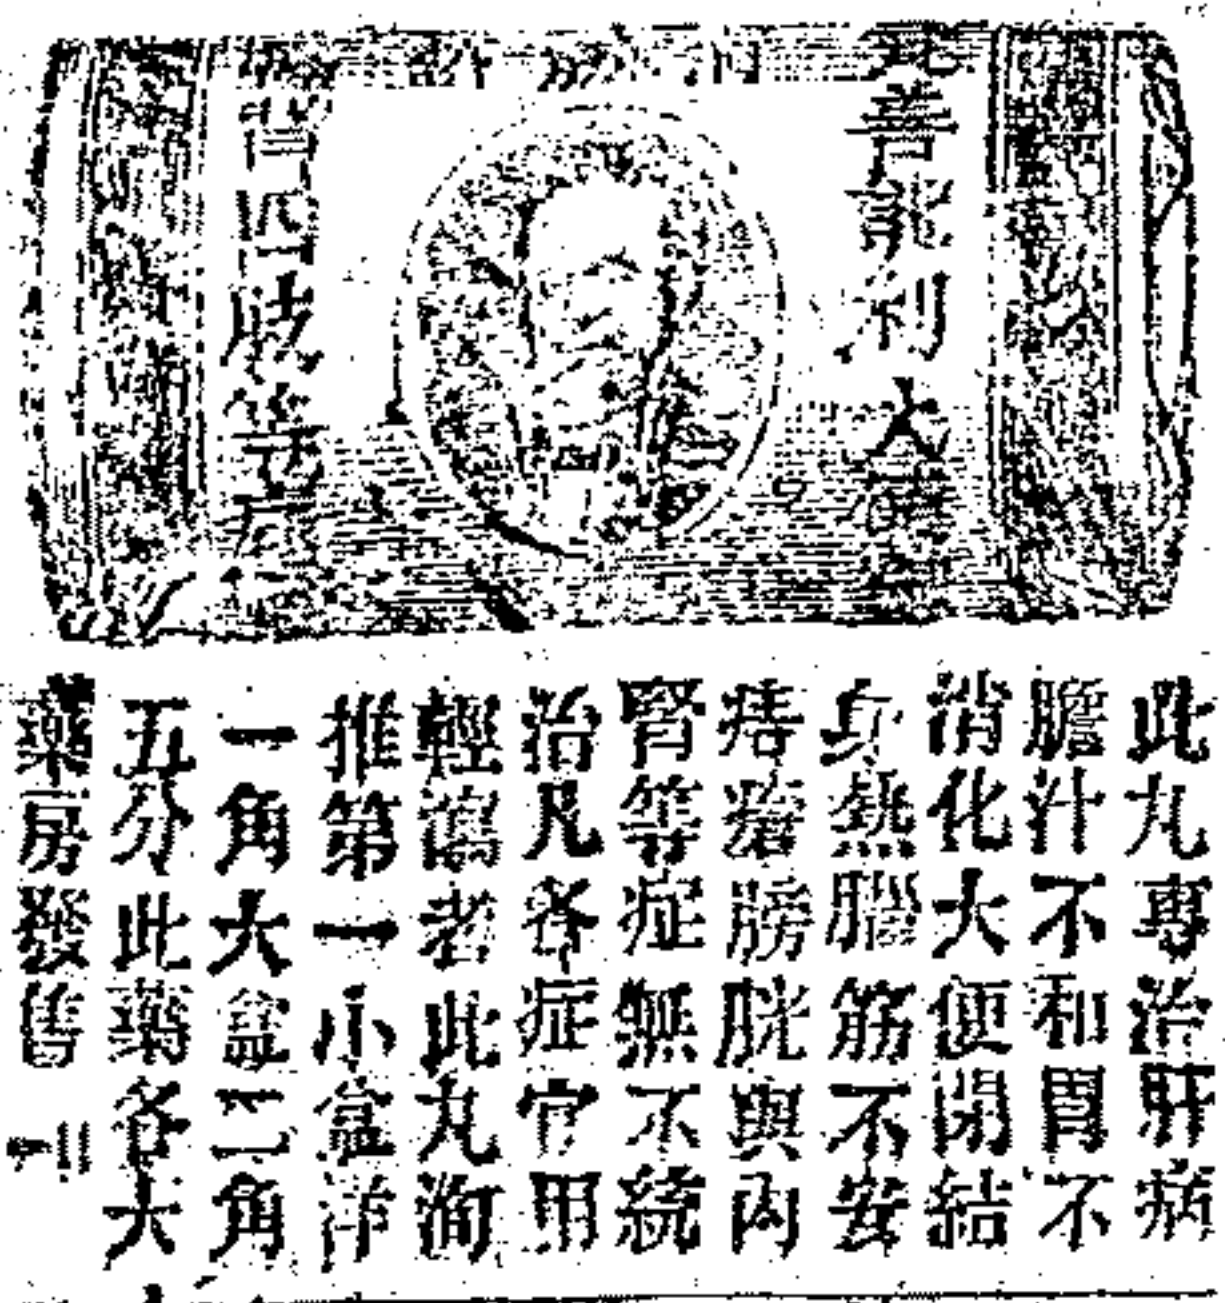 善能利大
此丸專治肝病
膽汁不和胃不
消化大便閉結
身熱腦筋不安
痔瘡膀胱與內
腎等症無不統
治凡各症宜用
輕瀉者此丸洵
推第一小盒洋
一角大盒二角
五分此藥各大
藥房發售